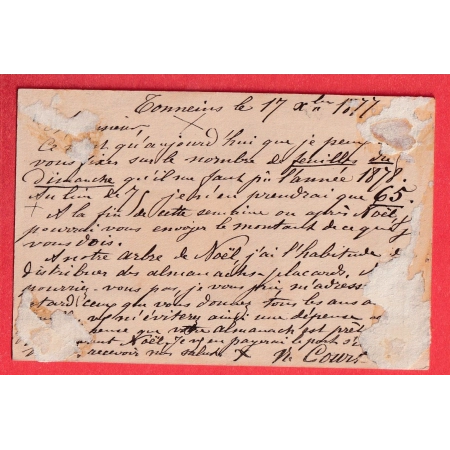 Tonneins le 17 Xbre 1877
Monsieur,
Ce n'est qu'aujourd'hui que je peux
vous fixer sur le nombre de feuilles du
Dimanche qu'il me faut pr l'année 1878.
Au lieu de 75 je n'en prendrai que 65.
A la fin de cette semaine ou après Noël, je
pourrai vous envoyer le montant de ce que je
vous dois.
A notre arbre de Noël, j'ai l'habitude de
distribuer des almanachs placards. Ne
pourriez-vous pas, je vous prie, m'adresser
ceux que vous donnez tous les ans
m'éviterez ainsi une dépense
que votre almanach est prêt
Noël. Je n'en payerai le port
recevoir nos saluts N. Cours